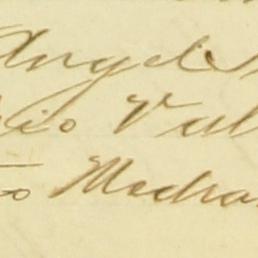 Angel
rio Val
to Medra